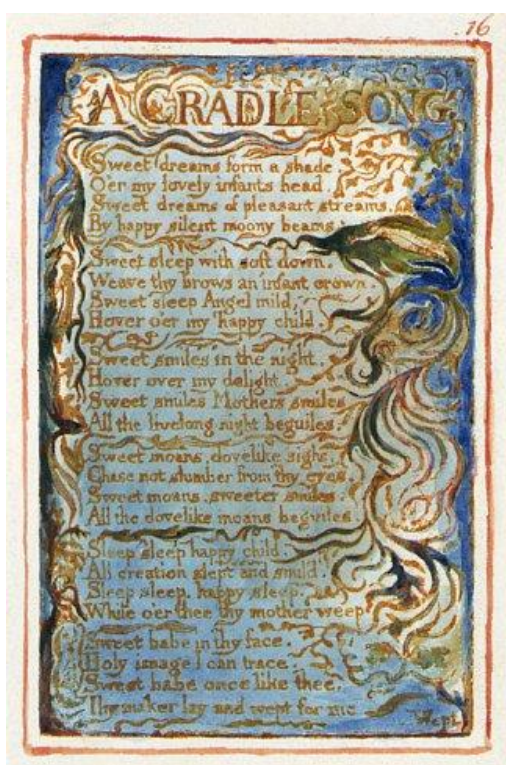 .16
A CRADLE SONG
Sweet dreams form a shade
O'er my lovely infants head.
Sweet dreams of pleasant streams.
By happy silent moony beams.
Sweet sleep with soft down.
Weave thy brows an infant crown
Sweet sleep Angel mild,
Hover o'er my happy child.
Sweet smiles in the night.
Hover over my delight.
Sweet smiles Mothers smiles
All the livelong night beguiles.
Sweet moans, dovelike sighs.
Chase not slumber from thy eyes.
Sweet moans, sweeter smiles.
All the dovelike moans beguiles
Sleep sleep happy child.
All creation slept and smil'd.
Sleep sleep, happy sleep,
While o'er thee thy mother weep
Sweet babe in thy face,
Holy image I can trace.
Sweet babe once like thee,
Thy maker lay and wept for me
Wept